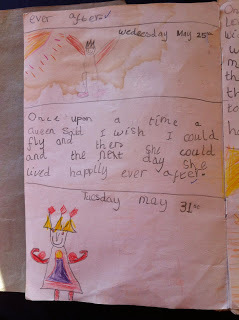 ever after.
Wednesday May 25th
Once upon a time a
Queen said I wish I could
fly and there she could
and the next day she
lived happily ever after.
Tuesday may 31st